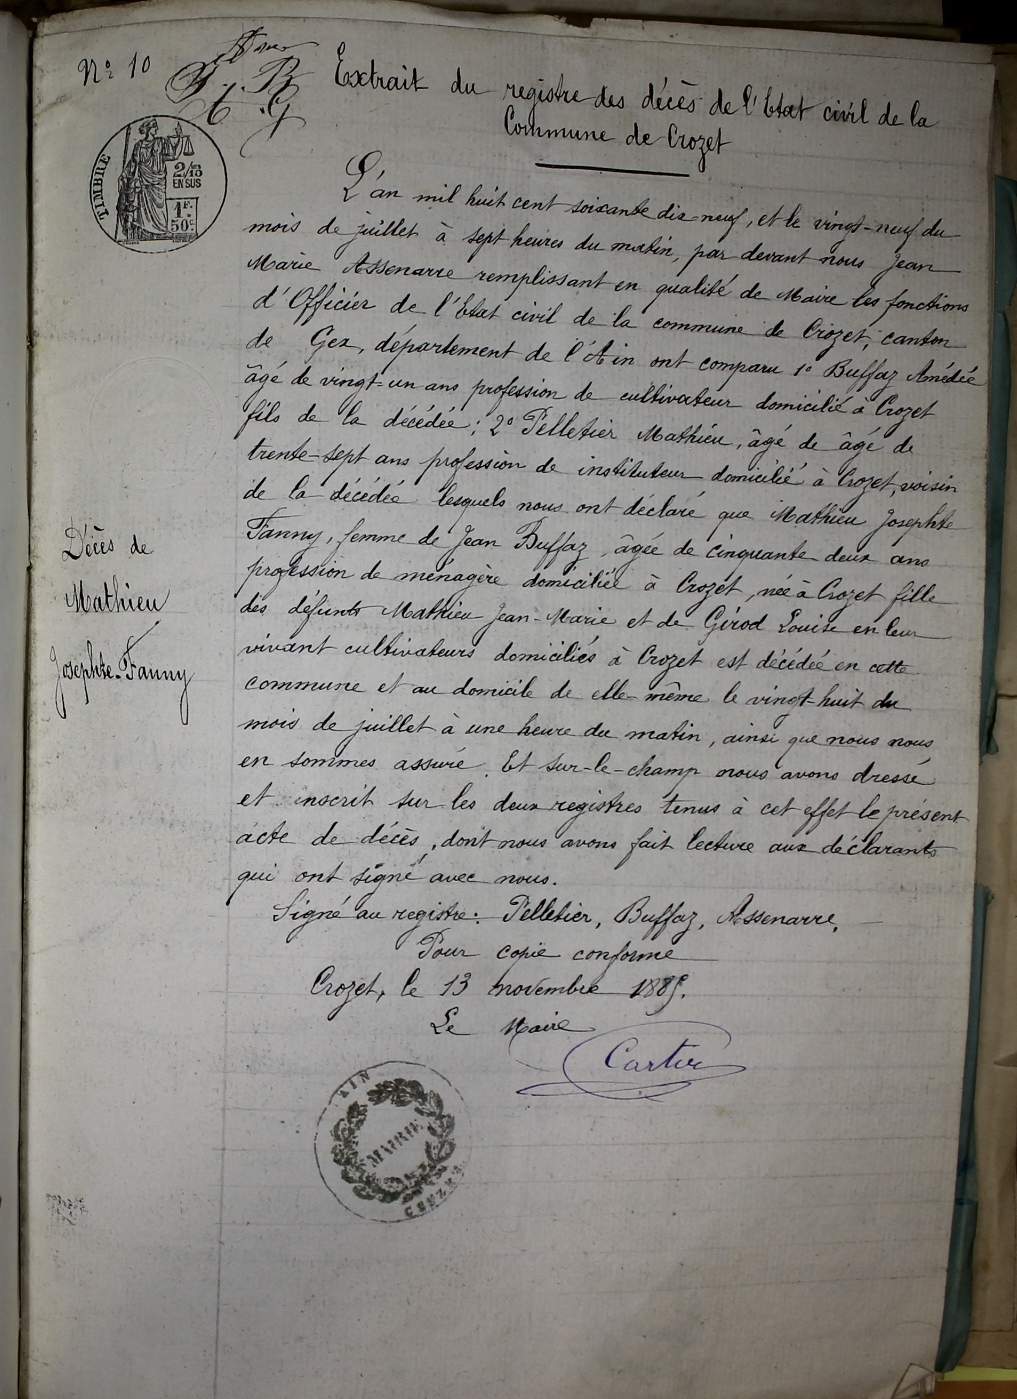 Nº 10
Extrait du registre des décès de l'Etat civil de la
Commune de Crozet
TIMBRE
2/13
EN SUS
1F.
50c
L'an mil huit cent soixante dix neuf, et le vingt-neuf du
mois de juillet à sept heures du matin, par devant nous Jean
Marie Assenarre remplissant en qualité de Maire les fonctions
d'Officier de l'Etat civil de la commune de Crozet, canton
de Gex, département de l'Ain ont comparu 1º Buffaz Amédée
âgé de vingt-un ans profession de cultivateur domicilié à Crozet
fils de la décédée; 2º Pelletier Mathieu, âgé de âgé de
trente-sept ans profession de instituteur domicilié à Crozet, voisin
de la décédée lesquels nous ont déclaré que Mathieu Josephte
Fanny, femme de Jean Buffaz, âgée de cinquante deux ans
profession de ménagère domiciliée à Crozet, née à Crozet fille
des défunts Mathieu Jean-Marie et de Girod Louise en leur
vivant cultivateurs domiciliés à Crozet est décédée en cette
commune et au domicile de elle-même le vingt-huit du
mois de juillet à une heure du matin, ainsi que nous nous
en sommes assuré. Et sur-le-champ nous avons dressé
et inscrit sur les deux registres tenus à cet effet le présent
acte de décès, dont nous avons fait lecture aux déclarants
qui ont signé avec nous.
Décès de
Mathieu
Josephte-Fanny
Signé au registre: Pelletier, Buffaz, Assenarre,
Pour copie conforme
Crozet, le 13 novembre
Le Maire
AIN
MAIRIE
CROZET